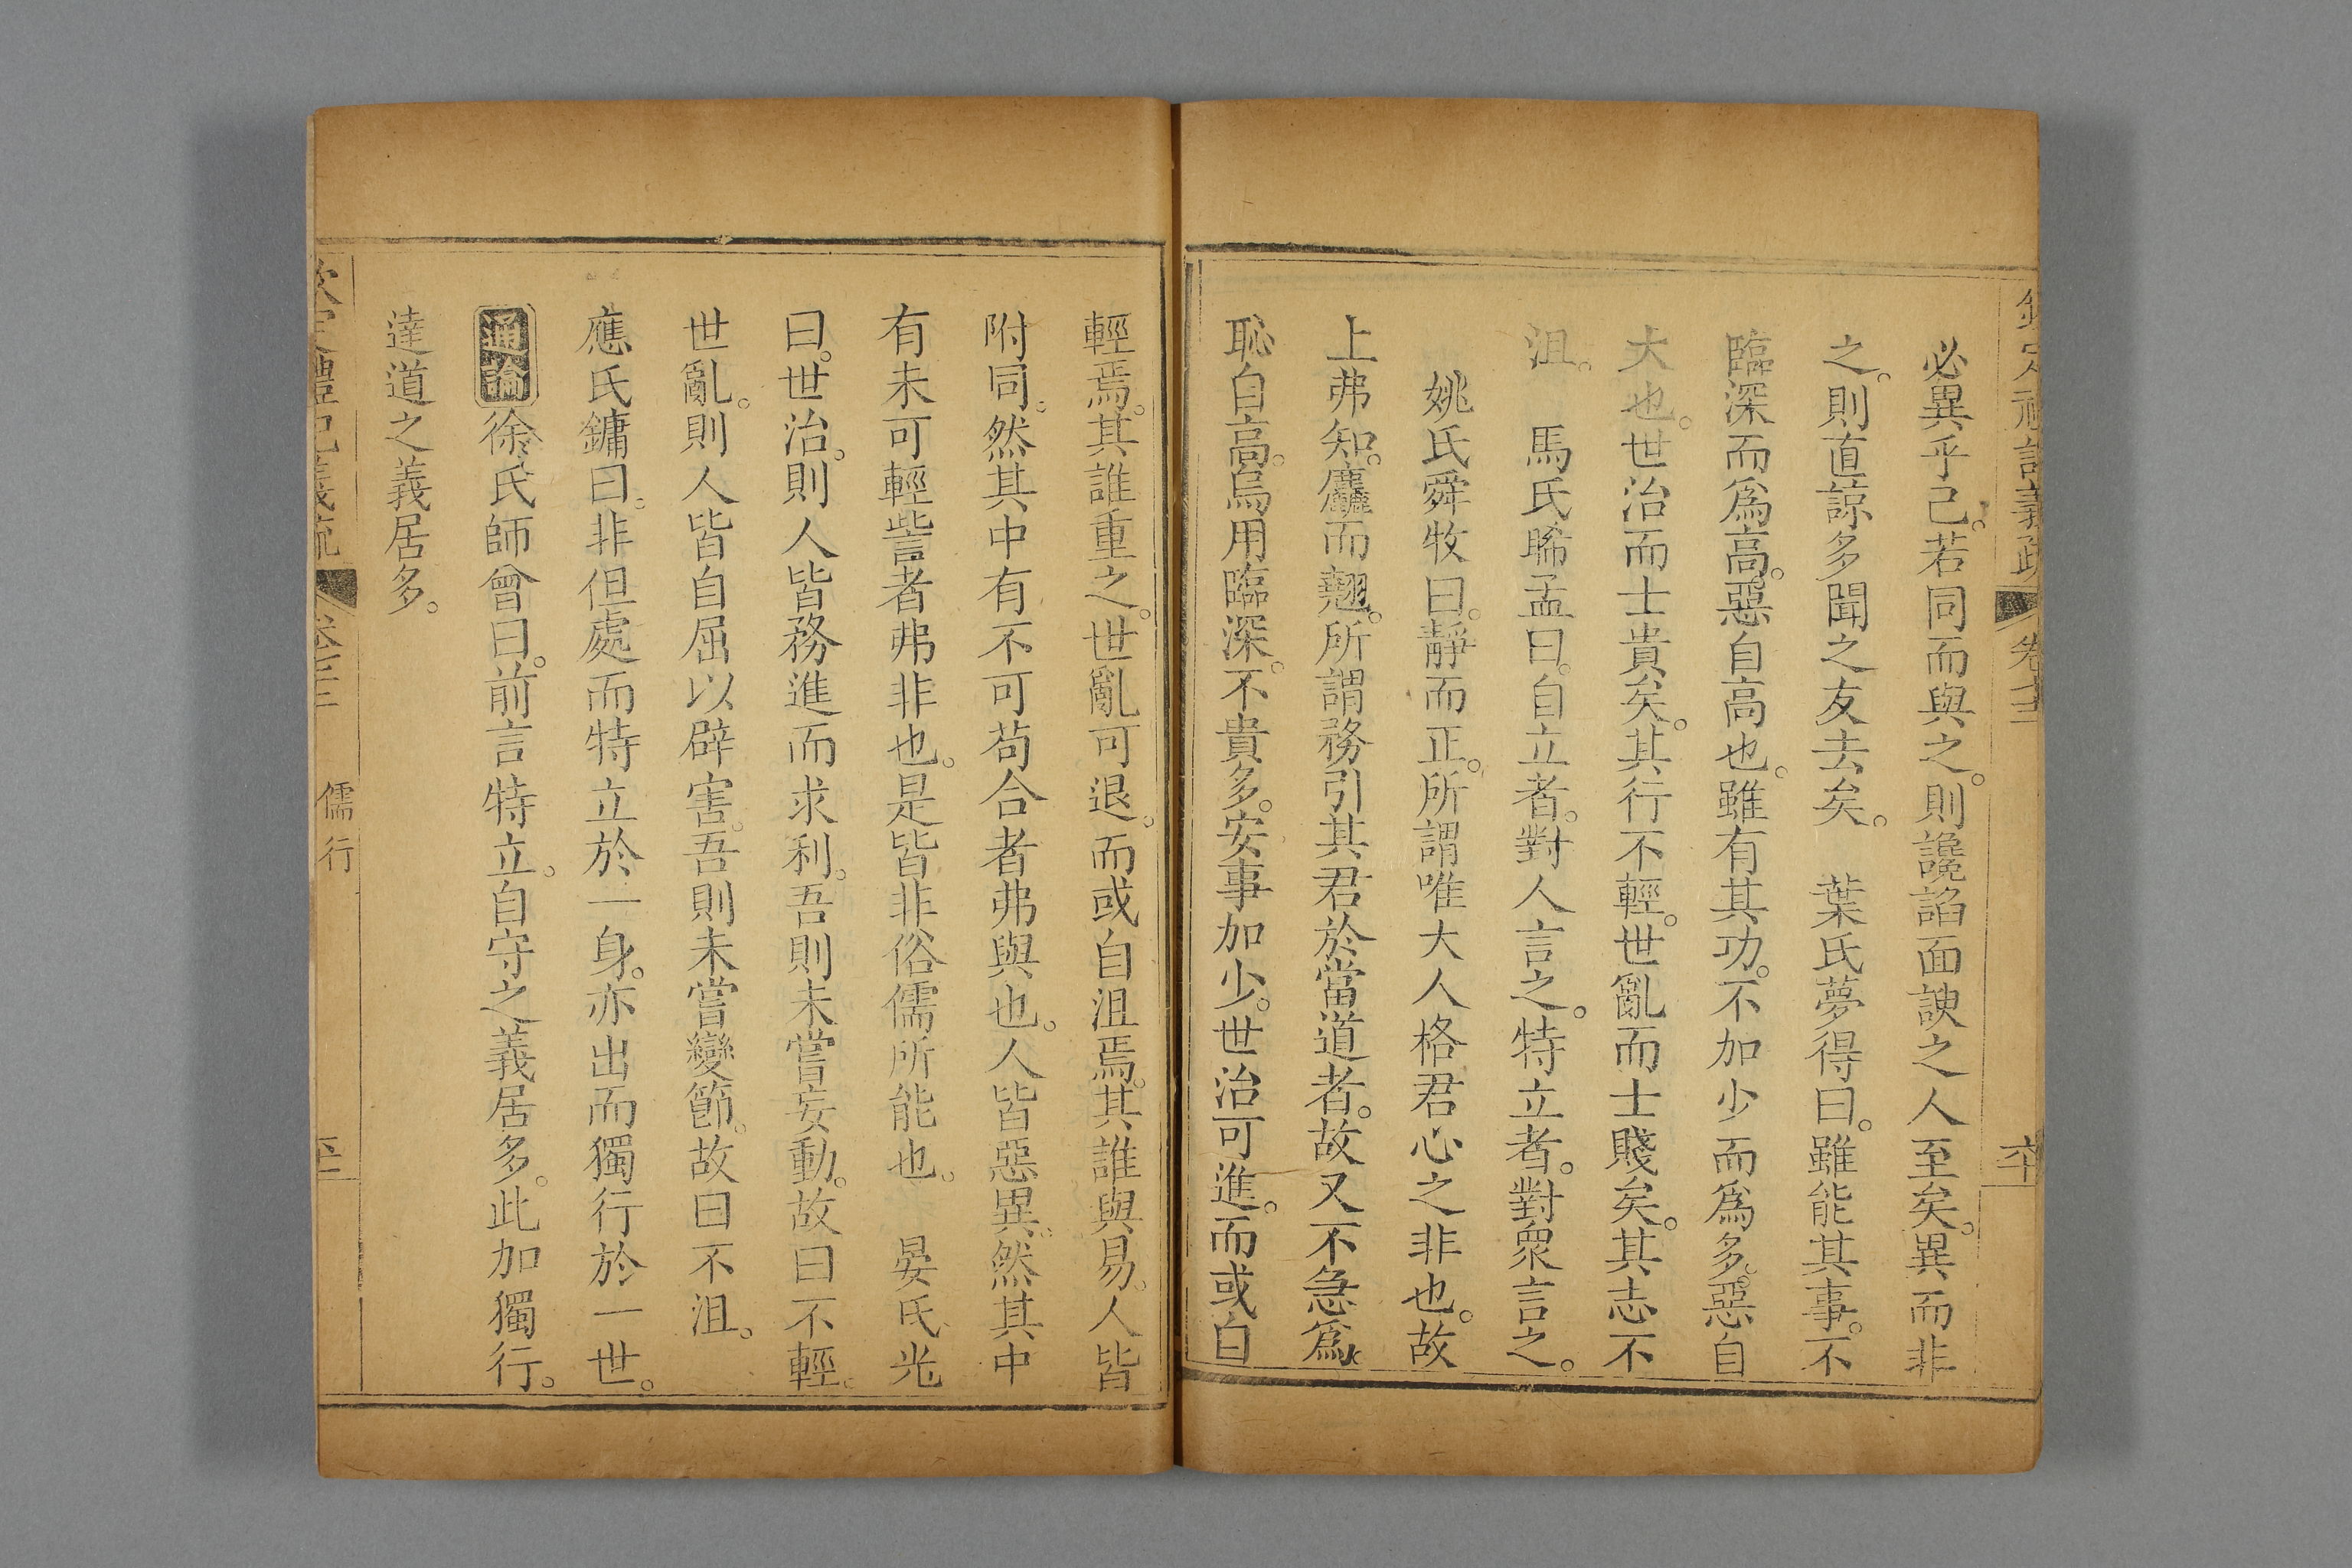 欽定禮記義疏 卷七十三 六十
必異乎己。若同而與之。則讒諂面諛之人至矣。異而非
之。則直諒多聞之友去矣。 葉氏夢得曰。雖能其事。不
臨深而爲高。惡自高也。雖有其功。不加少而爲多。惡自
大也。世治而士貴矣。其行不輕。世亂而士賤矣。其志不
沮。 馬氏睎孟曰。自立者。對人言之。特立者。對衆言之。
姚氏舜牧曰。靜而正。所謂唯大人格君心之非也。故
上弗知。麤而翹。所謂務引其君於當道者。故又不急爲
恥自高。烏用臨深。不貴多。安事加少。世治可進。而或自
輕焉。其誰重之。世亂可退。而或自沮焉。其誰與易。人皆
附同。然其中有不可苟合者弗與也。人皆惡異。然其中
有未可輕訾者弗非也。是皆非俗儒所能也。 晏氏光
曰。世治。則人皆務進而求利。吾則未嘗妄動。故曰不輕。
世亂。則人皆自屈以辟害。吾則未嘗變節。故曰不沮。
應氏鏞曰。非但處而特立於一身。亦出而獨行於一世。
通論 徐氏師曾曰。前言特立。自守之義居多。此加獨行。
達道之義居多。
欽定禮記義疏 儒行